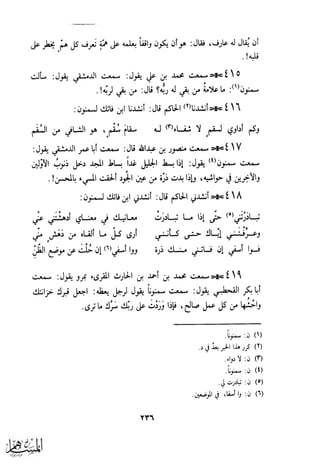 أن يُقال له عارف، فقال: هو أن يكون واقفاً بعلمه على همّةٍ تعرف كل همٍّ يخطر على
قلبه!.
٤١٥ سمعت محمد بن علي يقول: سمعت الدمشقي يقول: سألت
سمنون(١): ما علامةُ من بقي له ربُّه؟ قال: من بقي لربِّه!.
٤١٦ أنشدنا(٢) الحاكم قال: أنشدنا ابن فاتك لسمنون:
وكم أداوي لسقمٍ لا شفاء(٣) له سقامُ سُقمي، هو الشافي من السُّقم
٤١٧ سمعت منصور بن عبدالله قال: سمعت أبا عمر الدمشقي يقول:
سمعت سمنون(٤) يقول: إذا بسط الجليل غداً بساط المجد دخل ذنوبُ الأوّلين
والآخرين في حواشيه، وإذا بدت ذرّة من عين الجُود ألحقت المسيء بالمحسن!.
٤١٨ أنشدني الحاكم قال: أنشدني ابن فاتك لسمنون:
تبادَرَتني(٥) حتى إذا ما تبادَرَتْ معانيك في معناي أدهشتني عني
وعرَّفتني إيّاك حتى كأنني أرى كلَّ ما ألقاه من دَهَشٍ مني
فوا أسفي إن فاتني منك ذرة ووا أسفي(٦) إن حُلْتُ عن موضع الظن
٤١٩ سمعت محمد بن أحمد بن الحارث المقرىء بمرو يقول: سمعت
أبا بكر القحطبي يقول: سمعت سمنوناً يقول لرجل يعظه: اجعل قبرك خزانتك
واحْشُها من كل عمل صالح، فإذا وَرَدْتَ على ربّك سَرَّك ما ترى.
(١) ن: سمنوناً.
(٢) كرر هذا الخبر بعدُ في د.
(٣) ن: لا دواء.
(٤) ن: سمنوناً.
(٥) ن: تبادرت لي.
(٦) ن: وا أسفا، في الموضعين.
٢٣٦